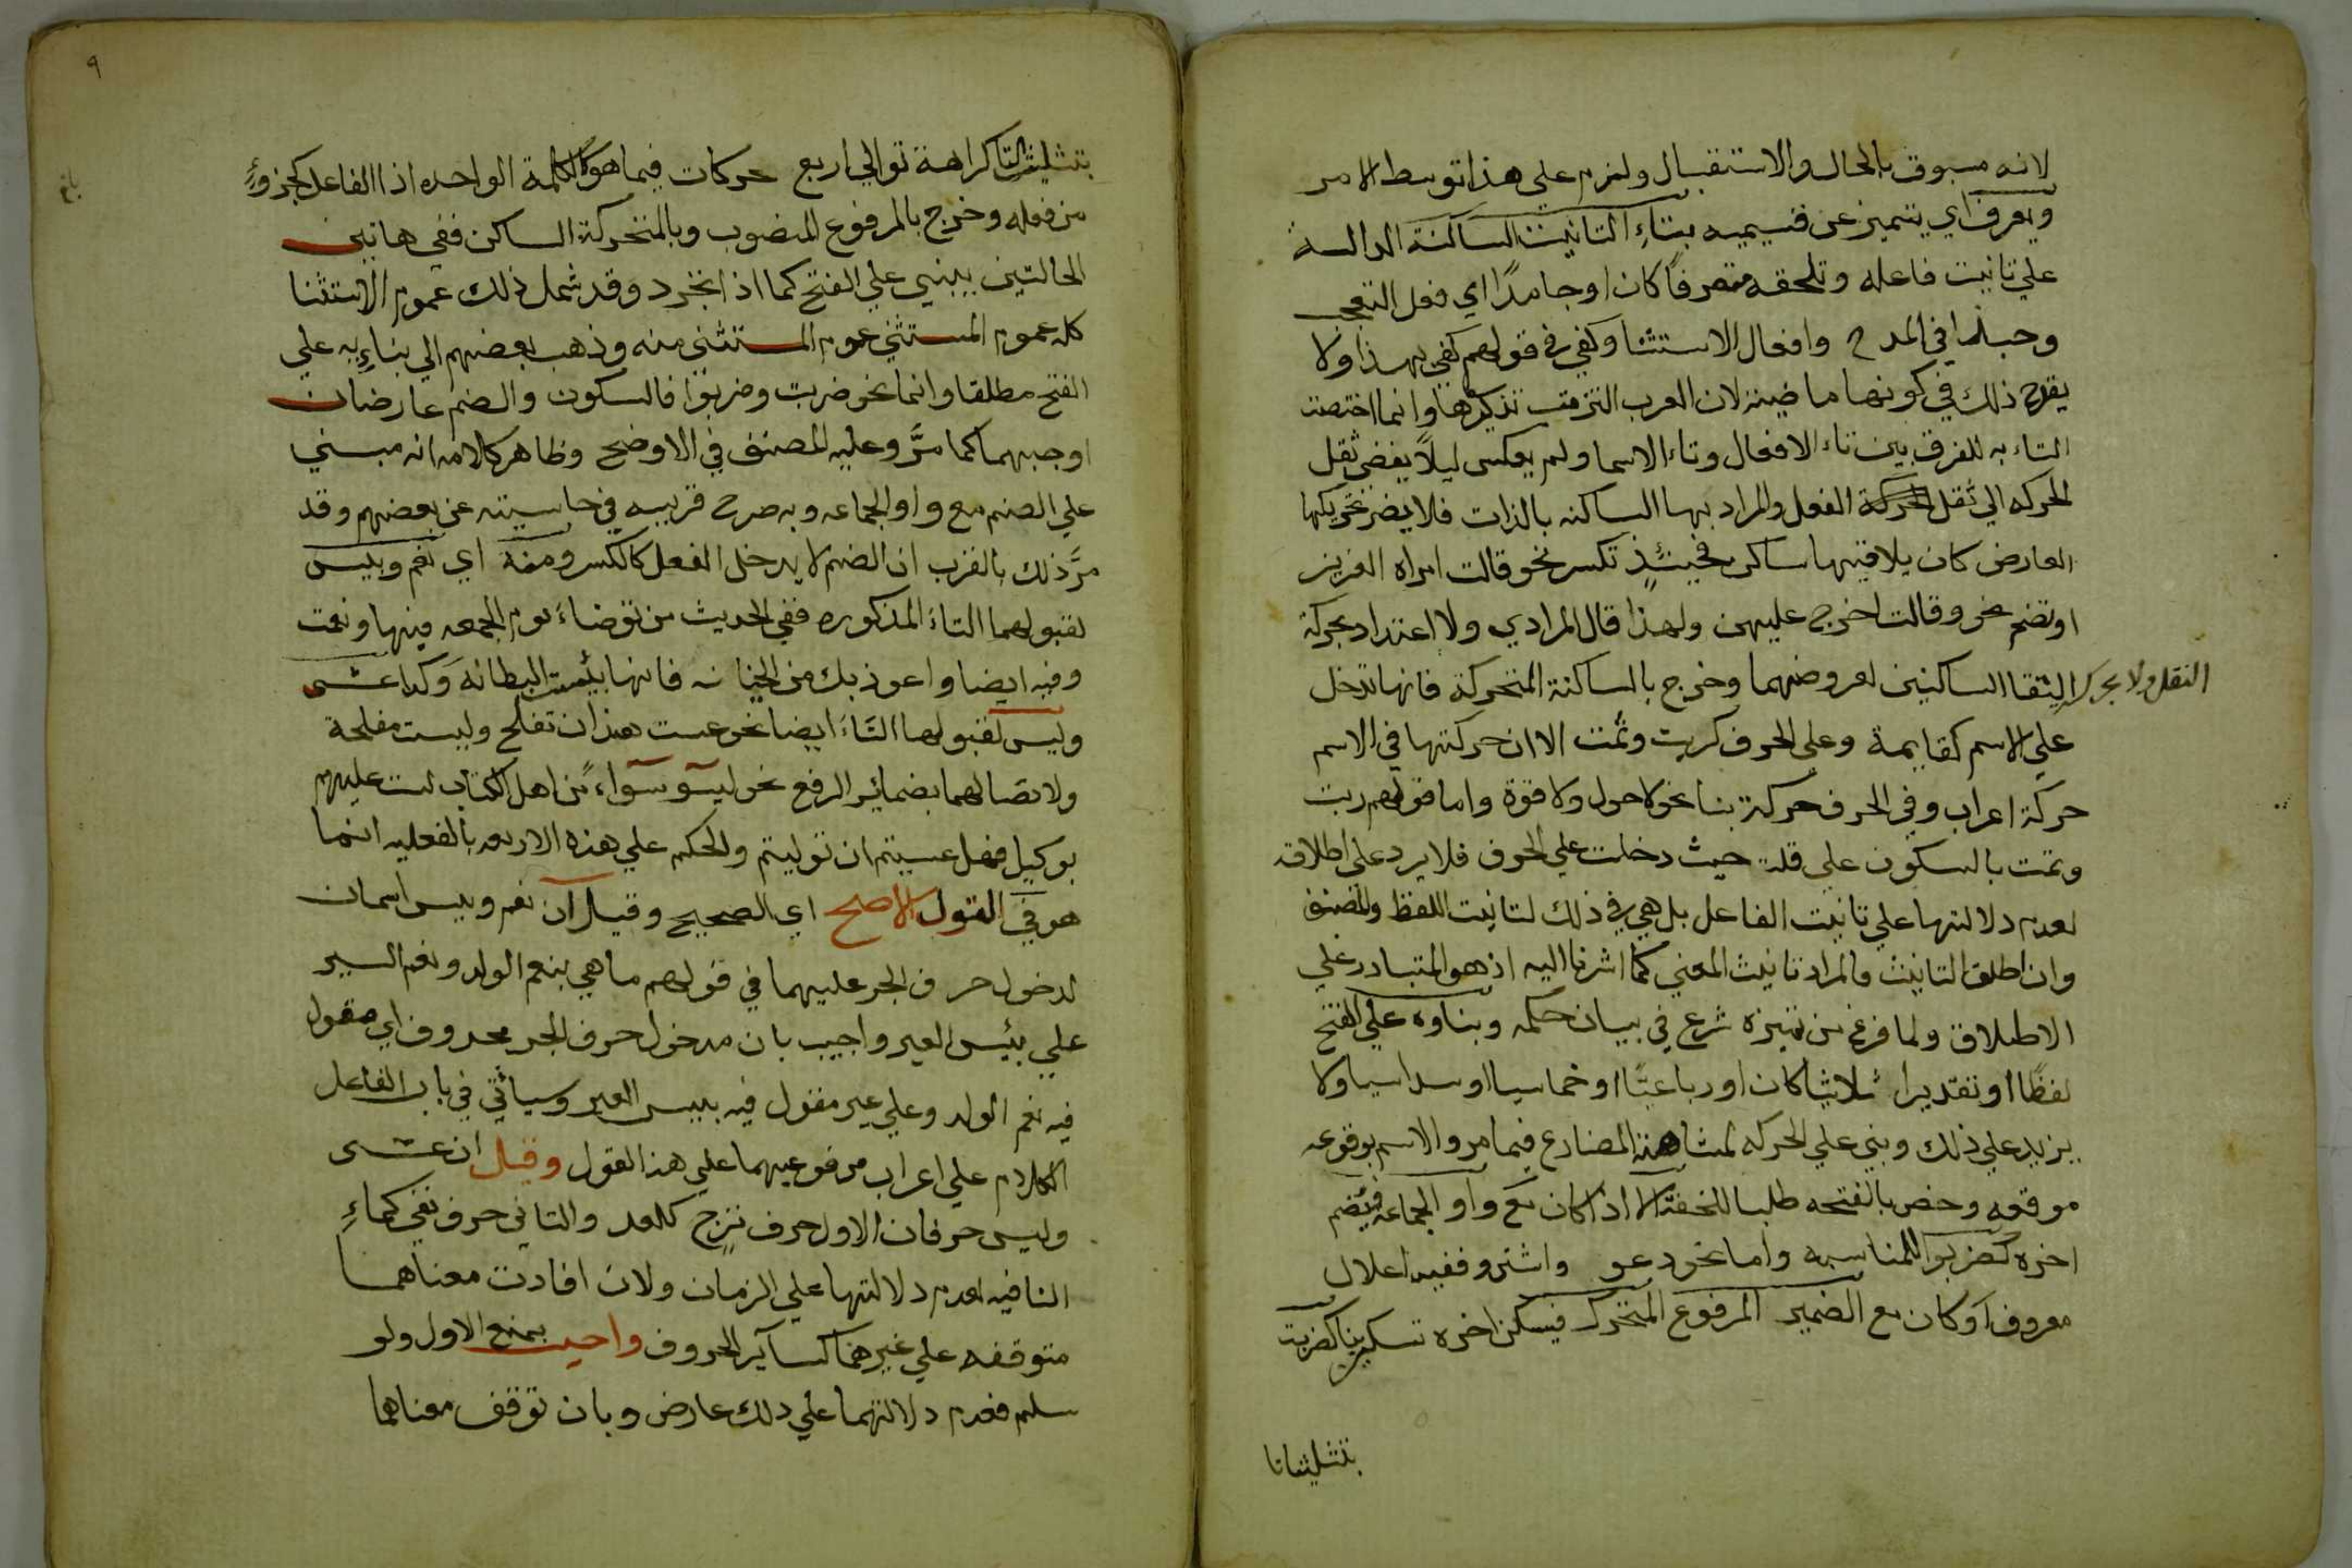 لانه مسبوق بالحال والاستقبال ولزم علي هذا توسط الامر
ويعرف اي يتميز عن قسيميه بتاء التانيث الساكنة الدالة
علي تانيث فاعله وتلحقه متصرفا كان او جامدا اي فعل التعجب
وحبذا في المدح وافعال الاستثنا وكفي في قولهم كفي بهذا ولا
يقدح ذلك في كونها ماضية لان العرب التزمت تذكيرها وانما اختصت
التاء به للفرق بين تاء الافعال وتاء الاسما ولم يعكس ليلا يفضي ثقل
الحركه الي ثقل الفعل والمراد بها الساكنه بالذات فلا يضر تحريكها
العارض كان يلاقيها ساكن فحينئذ تكسر نحو قالت امراه العزيز
او تضم نحو وقالت اخرج عليهن ولهذا قال المرادي ولا اعتداد بحركة
النقل ولا بحركة التقا الساكنين لعروضهما وخرج بالساكنة المتحركة فانها تدخل
علي الاسم كقايمة وعلي الحرف كربت وثمت الا ان حركتها في الاسم
حركة اعراب وفي الحرف حركة بنا نحو لا حول ولا قوة واما قولهم ربت
وثمت بالسكون علي قلة حيث دخلت علي الحرف فلا يرد علي اطلاقه
لعدم دلالتها علي تانيث الفاعل بل هي في ذلك لتانيث اللفظ والمصنف
وان اطلق التانيث فالمراد تانيث المعني كما اشرنا اليه اذ هو المتبادر علي
الاطلاق ولما فرغ من تميزه شرع في بيان حكمه وبناوه علي الفتح
لفظا او تقديرا ثلاثيا كان او رباعيا او خماسيا او سداسيا ولا
يزيد علي ذلك وبني علي الحركه لمشابهة المضارع فيما مر والاسم بوقوعه
موقعه وخص بالفتحه طلبا للخفة الا اذا كان مع واو الجماعه فيضم
اخره كضربوا للمناسبه واما نحو دعو واشترو ففيه اعلال
معروف او كان مع الضمير المرفوع المتحرك فيسكن اخره تسكين بنا كضربت
بتثليث تا
٩
بتثليث التا كراهة توالي اربع حركات فيما هو كالكلمة الواحده اذ الفاعل كجزؤ
من فعله وخرج بالمرفوع المنصوب وبالمتحركة الساكن ففي هاتين
الحالتين يبني علي الفتح كما اذا تجرد وقد شمل ذلك عموم الاستثنا
كله عموم المستثني عموم المستثني منه وذهب بعضهم الي بنايه علي
الفتح مطلقا وانما نحو ضربت وضربوا فالسكون والضم عارضان
اوجبهما كما مر وعليه المصنف في الاوضح وظاهر كلامه انه مبني
علي الضم مع واو الجماعه وبه صرح قريبه في حاشيته عن بعضهم وقد
مر ذلك بالقرب ان الضم لا يدخل الفعل كالكسر ومنه اي نعم وبيس
لقبولهما التاء المذكوره ففي الحديث من توضاء يوم الجمعه فبها ونعمت
وفيه ايضا واعوذ بك من الخيانه فانها بئست البطانه وكذا عسي
وليس لقبولها التاء ايضا نحو عست هند ان تفلح وليست مفلحة
ولاتصالهما بضمائر الرفع نحو ليسو سواء من اهل الكتاب لست عليهم
بوكيل فهل عسيتم ان توليتم والحكم علي هذه الاربعه بالفعليه انما
هو في القول الاصح اي الصحيح وقيل ان نعم وبيس اسمان
لدخول حرف الجر عليهما في قولهم ما هي بنعم الولد ونعم السير
علي بئس العير واجيب بان مدخول حرف الجر محذوف اي مقول
فيه نعم الولد وعلي عير مقول فيه ببيس العير وسيأتي في باب الفاعل
الكلام علي اعراب مرفوعيهما علي هذا القول وقيل ان عسى
وليس حرفان الاول حرف ترج كلعل والثاني حرف نفي كماء
النافيه لعدم دلالتها علي الزمان ولان افادت معناهما
متوقفه علي غيرهما كساير الحروف واجيب بمنع الاول ولو
سلم فعدم دلالتهما علي ذلك عارض وبان توقف معناهما